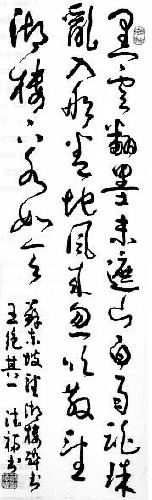 黑雲翻墨未遮山白雨跳珠
亂入船卷地風來忽吹散望
湖樓下水如天
蘇東坡望湖樓醉書
五絕其一 書